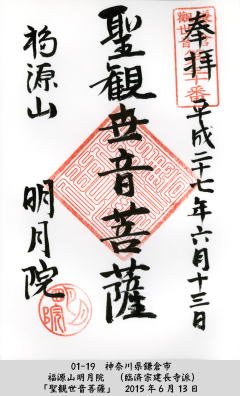 奉拝
平成二十七年六月十三日
聖観世音菩薩
福源山
明月院
01-19 神奈川県鎌倉市
福源山明月院 (臨済宗建長寺派)
「聖観世音菩薩」 2015年6月13日